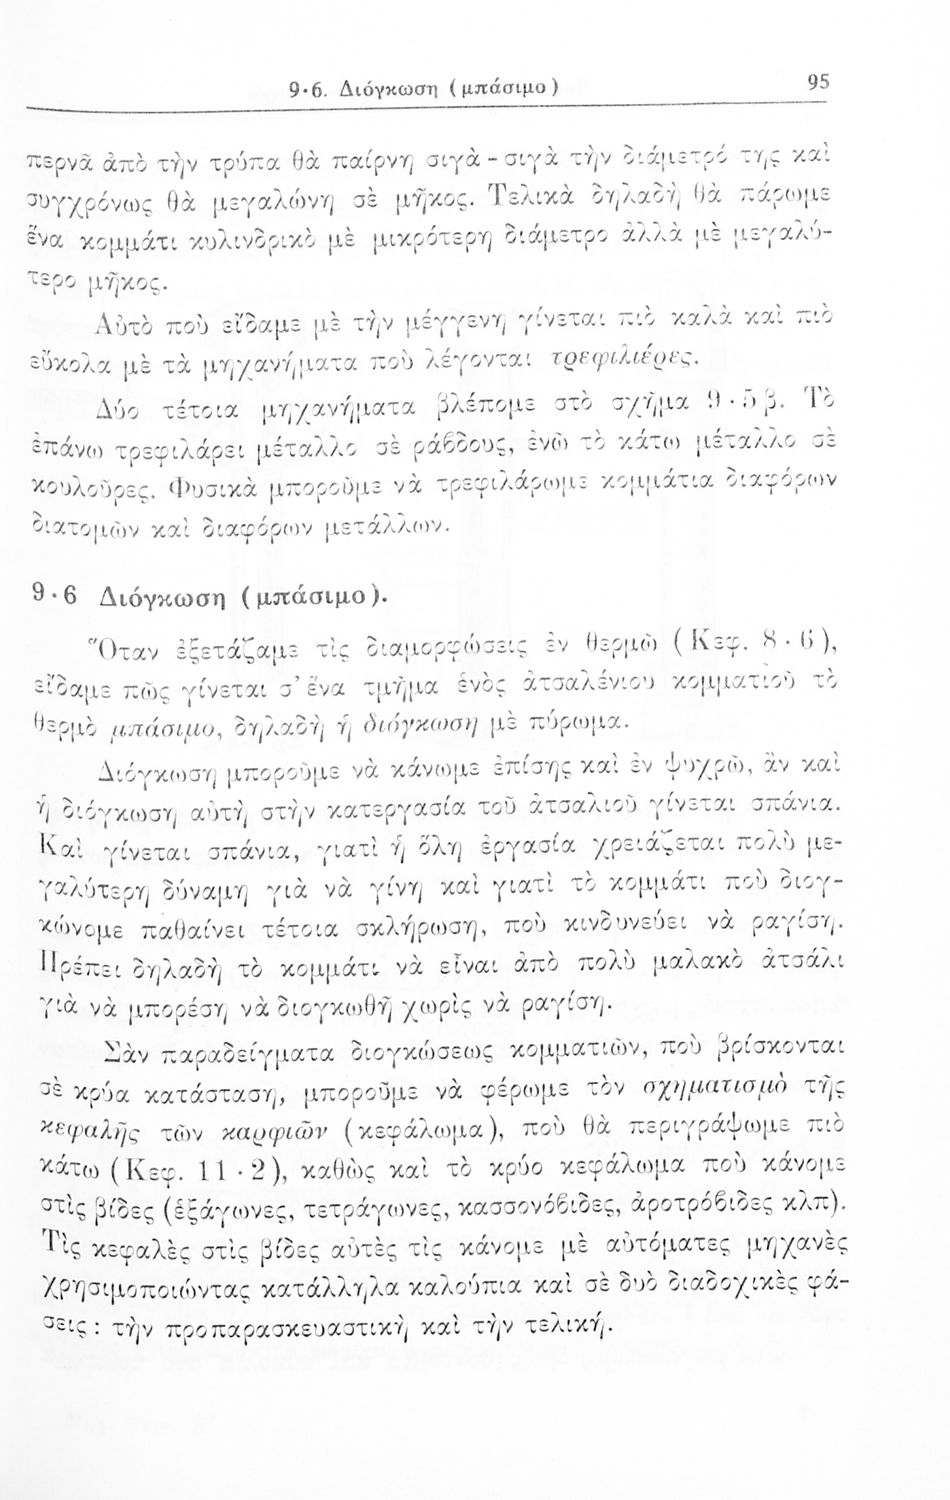 9·6. Διόγκωση (μπάσιμο) 95
περνᾶ ἀπὸ τὴν τρύπα θὰ παίρνη σιγὰ - σιγὰ τὴν διάμετρό της καὶ
συγχρόνως θὰ μεγαλώνη σὲ μῆκος. Τελικὰ δηλαδὴ θὰ πάρωμε
ἕνα κομμάτι κυλινδρικὸ μὲ μικρότερη διάμετρο ἀλλὰ μὲ μεγαλύ-
τερο μῆκος.
Αὐτὸ ποὺ εἴδαμε μὲ τὴν μέγγενη γίνεται πιὸ καλὰ καὶ πιὸ
εὔκολα μὲ τὰ μηχανήματα ποὺ λέγονται τρεφιλιέρες.
Δύο τέτοια μηχανήματα βλέπομε στὸ σχῆμα 9·5β. Τὸ
ἐπάνω τρεφιλάρει μέταλλο σὲ ράβδους, ἐνῶ τὸ κάτω μέταλλο σὲ
κουλοῦρες. Φυσικὰ μποροῦμε νὰ τρεφιλάρωμε κομμάτια διαφόρων
διατομῶν καὶ διαφόρων μετάλλων.
9·6 Διόγκωση (μπάσιμο).
Ὅταν ἐξετάζαμε τὶς διαμορφώσεις ἐν θερμῶ (Κεφ. 8·6),
εἴδαμε πῶς γίνεται σ’ ἕνα τμῆμα ἑνὸς ἀτσαλένιου κομματιοῦ τὸ
θερμὸ μπάσιμο, δηλαδὴ ἡ διόγκωση μὲ πύρωμα.
Διόγκωση μποροῦμε νὰ κάνωμε ἐπίσης καὶ ἐν ψυχρῶ, ἂν καὶ
ἡ διόγκωση αὐτὴ στὴν κατεργασία τοῦ ἀτσαλιοῦ γίνεται σπάνια.
Καὶ γίνεται σπάνια, γιατὶ ἡ ὅλη ἐργασία χρειάζεται πολὺ με-
γαλύτερη δύναμη γιὰ νὰ γίνη καὶ γιατὶ τὸ κομμάτι ποὺ διογ-
κώνομε παθαίνει τέτοια σκλήρωση, ποὺ κινδυνεύει νὰ ραγίση.
Πρέπει δηλαδὴ τὸ κομμάτι νὰ εἶναι ἀπὸ πολὺ μαλακὸ ἀτσάλι
γιὰ νὰ μπορέση νὰ διογκωθῆ χωρὶς νὰ ραγίση.
Σὰν παραδείγματα διογκώσεως κομματιῶν, ποὺ βρίσκονται
σὲ κρύα κατάσταση, μποροῦμε νὰ φέρωμε τὸν σχηματισμὸ τῆς
κεφαλῆς τῶν καρφιῶν (κεφάλωμα), ποὺ θὰ περιγράψωμε πιὸ
κάτω (Κεφ. 11·2), καθὼς καὶ τὸ κρύο κεφάλωμα ποὺ κάνομε
στὶς βίδες (ἑξάγωνες, τετράγωνες, κασσονόβιδες, ἀροτρόβιδες κλπ).
Τὶς κεφαλὲς στὶς βίδες αὐτὲς τὶς κάνομε μὲ αὐτόματες μηχανὲς
χρησιμοποιώντας κατάλληλα καλούπια καὶ σὲ δυὸ διαδοχικὲς φά-
σεις: τὴν προπαρασκευαστικὴ καὶ τὴν τελική.